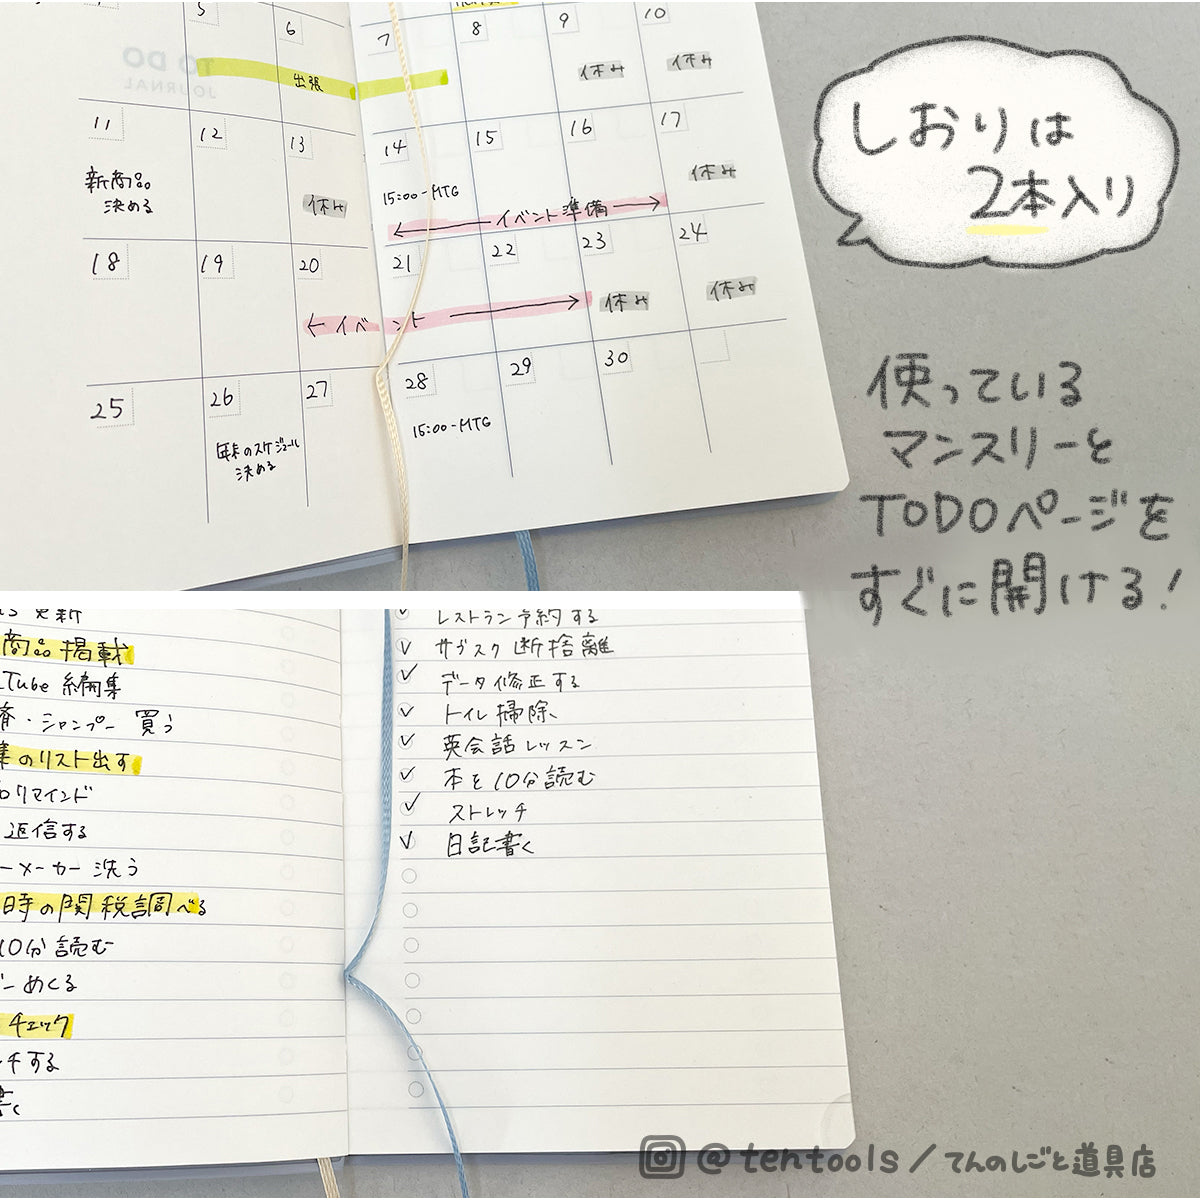 5
6
7
8
9
10
出張
休み
休み
TO DO
JOURNAL
11
12
13
14
15
16
17
新商品
決める
休み
15:00-MTG
イベント準備
休み
18
19
20
21
22
23
24
イベント
休み
休み
25
26
27
28
29
30
年末のスケジュール
決める
15:00-MTG
しおりは
2本入り
使っている
マンスリーと
TODOページを
すぐに開ける!
更新
商品掲載
Tube 編集
・シャンプー 買う
のリスト出す
リマインド
返信する
ーメーカー 洗う
時の関税調べる
10分読む
ーめくる
チェック
チする
書く
レストラン予約する
サブスク断捨離
データ修正する
トイレ掃除
英会話レッスン
本を10分読む
ストレッチ
日記書く
@tentools/てんのしごと道具店